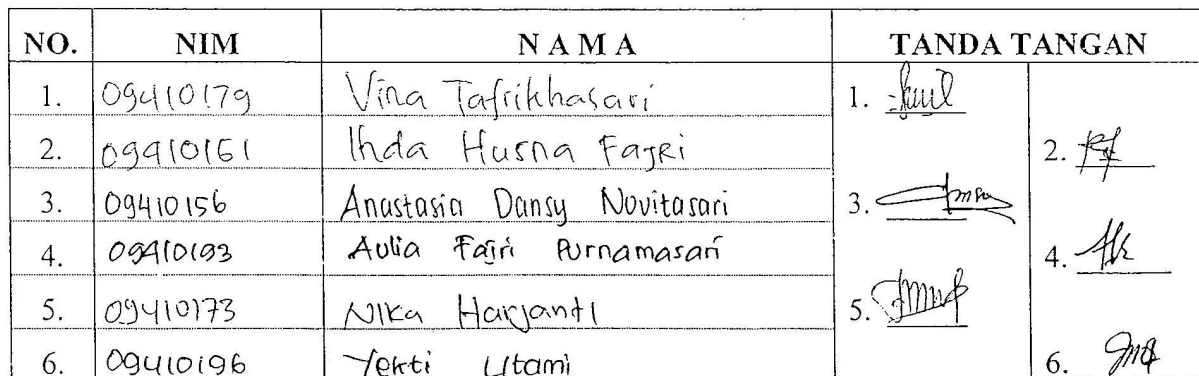 NO. NIM NAMA TANDA TANGAN
1. 09410179 Vina Tafrikhasari 1.
2. 09410161 Ihda Husna Fajri 2.
3. 09410156 Anastasia Dansy Novitasari 3.
4. 09410193 Aulia Fajri Purnamasari 4.
5. 09410173 Nika Harjanti 5.
6. 09410196 Yekti Utami 6.